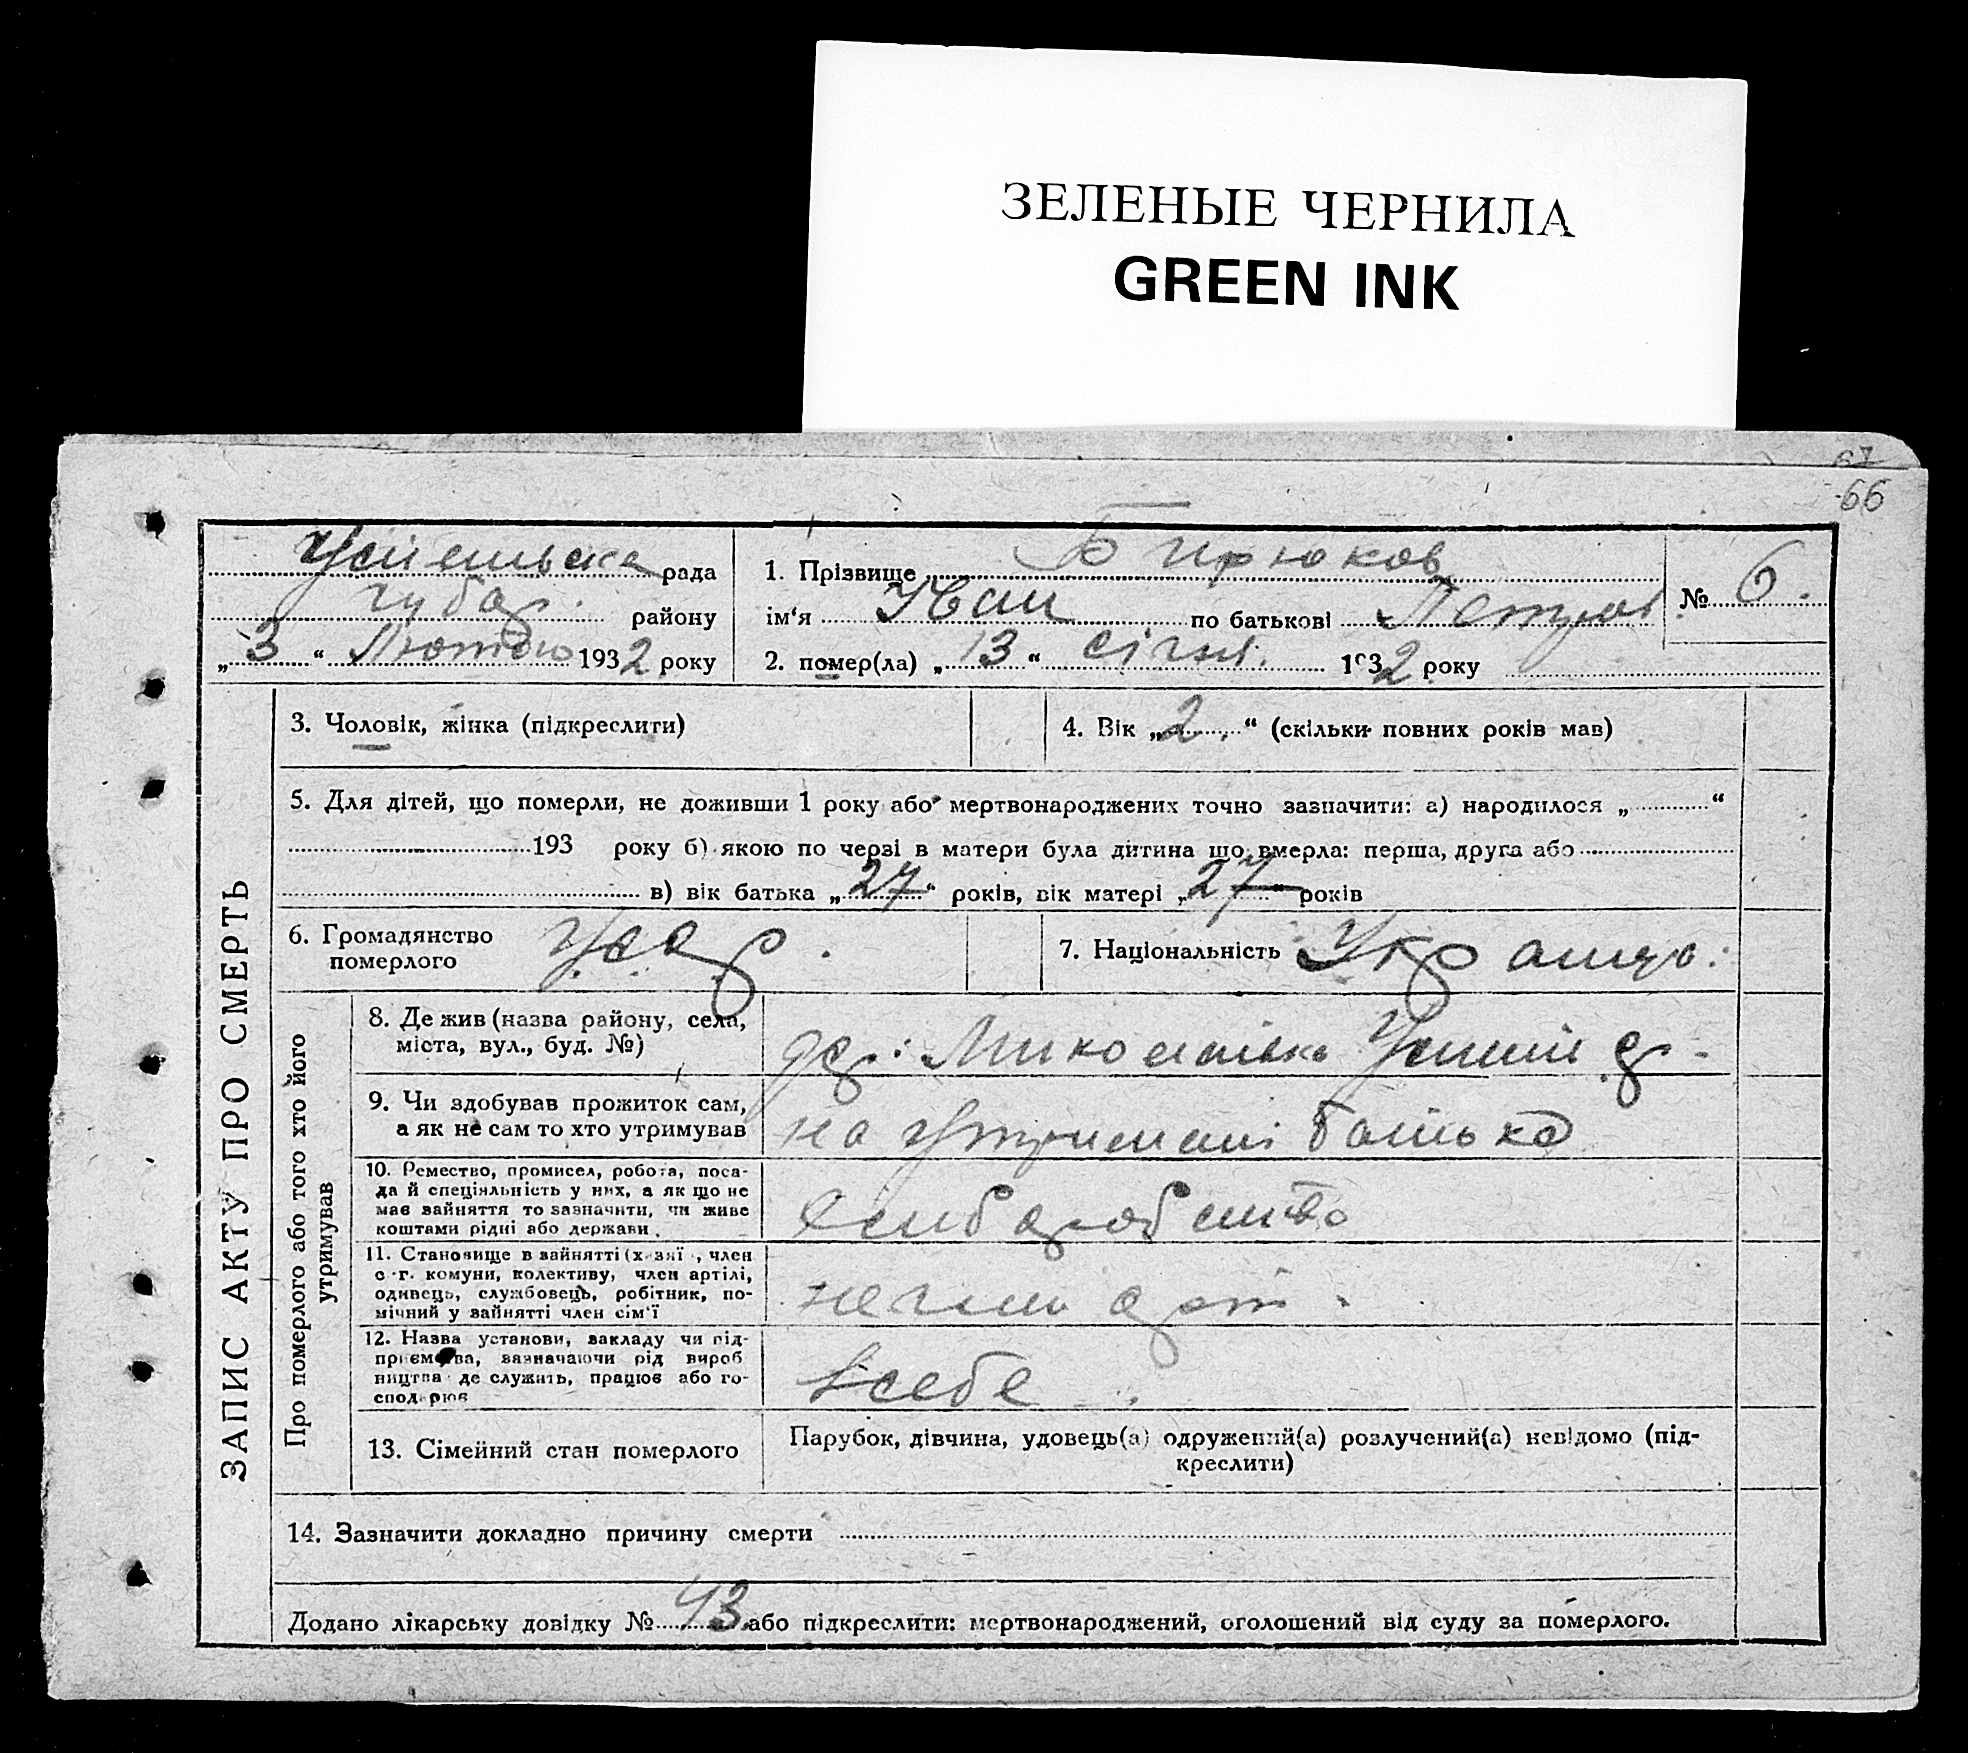 ЗЕЛЕНЫЕ ЧЕРНИЛА
GREEN INK
67
66
рада
губар. району
„3“ Лютого 1932 року
1. Прізвище Бирюков
ім‘я Иван по батькові Петров
2. помер(ла) „13“ січня. 1932 року
№ 6.
ЗАПИС АКТУ ПРО СМЕРТЬ
3. Чоловік, жінка (підкреслити)
4. Вік „2.“ (скільки повних років мав)
5. Для дітей, що померли, не доживши 1 року або мертвонароджених точно зазначити: а) народилося „ “
193 року б) якою по черзі в матери була дитина що вмерла: перша, друга або
в) вік батька „27“ років, вік матері „27“ років
6. Громадянство
померлого
усср.
7. Національність
Про померлого або того хто його
утримував
8. Де жив (назва району, села,
міста, вул., буд. №)
9. Чи здобував прожиток сам,
а як не сам то хто утримував
на утримані батька
10. Ремество, промисел, робота, поса-
да й спеціяльність у них, а як що не
має зайняття то зазначити, чи живе
коштами рідні або держави.
11. Становище в зайнятті (хазяї, член
с-г. комуни, колективу, член артілі,
одинець, службовець, робітник, по-
мічний у зайнятті член сім‘ї
12. Назва установи, закладу чи під-
приємства, зазначаючи рід вироб
ництва де служить, працює або го-
сподарює
всебе
13. Сімейний стан померлого
Парубок, дівчина, удовець(а) одружений(а) розлучений(а) невідомо (під-
креслити)
14. Зазначити докладно причину смерти
Додано лікарську довідку № 43 або підкреслити: мертвонароджений, оголошений від суду за померлого.